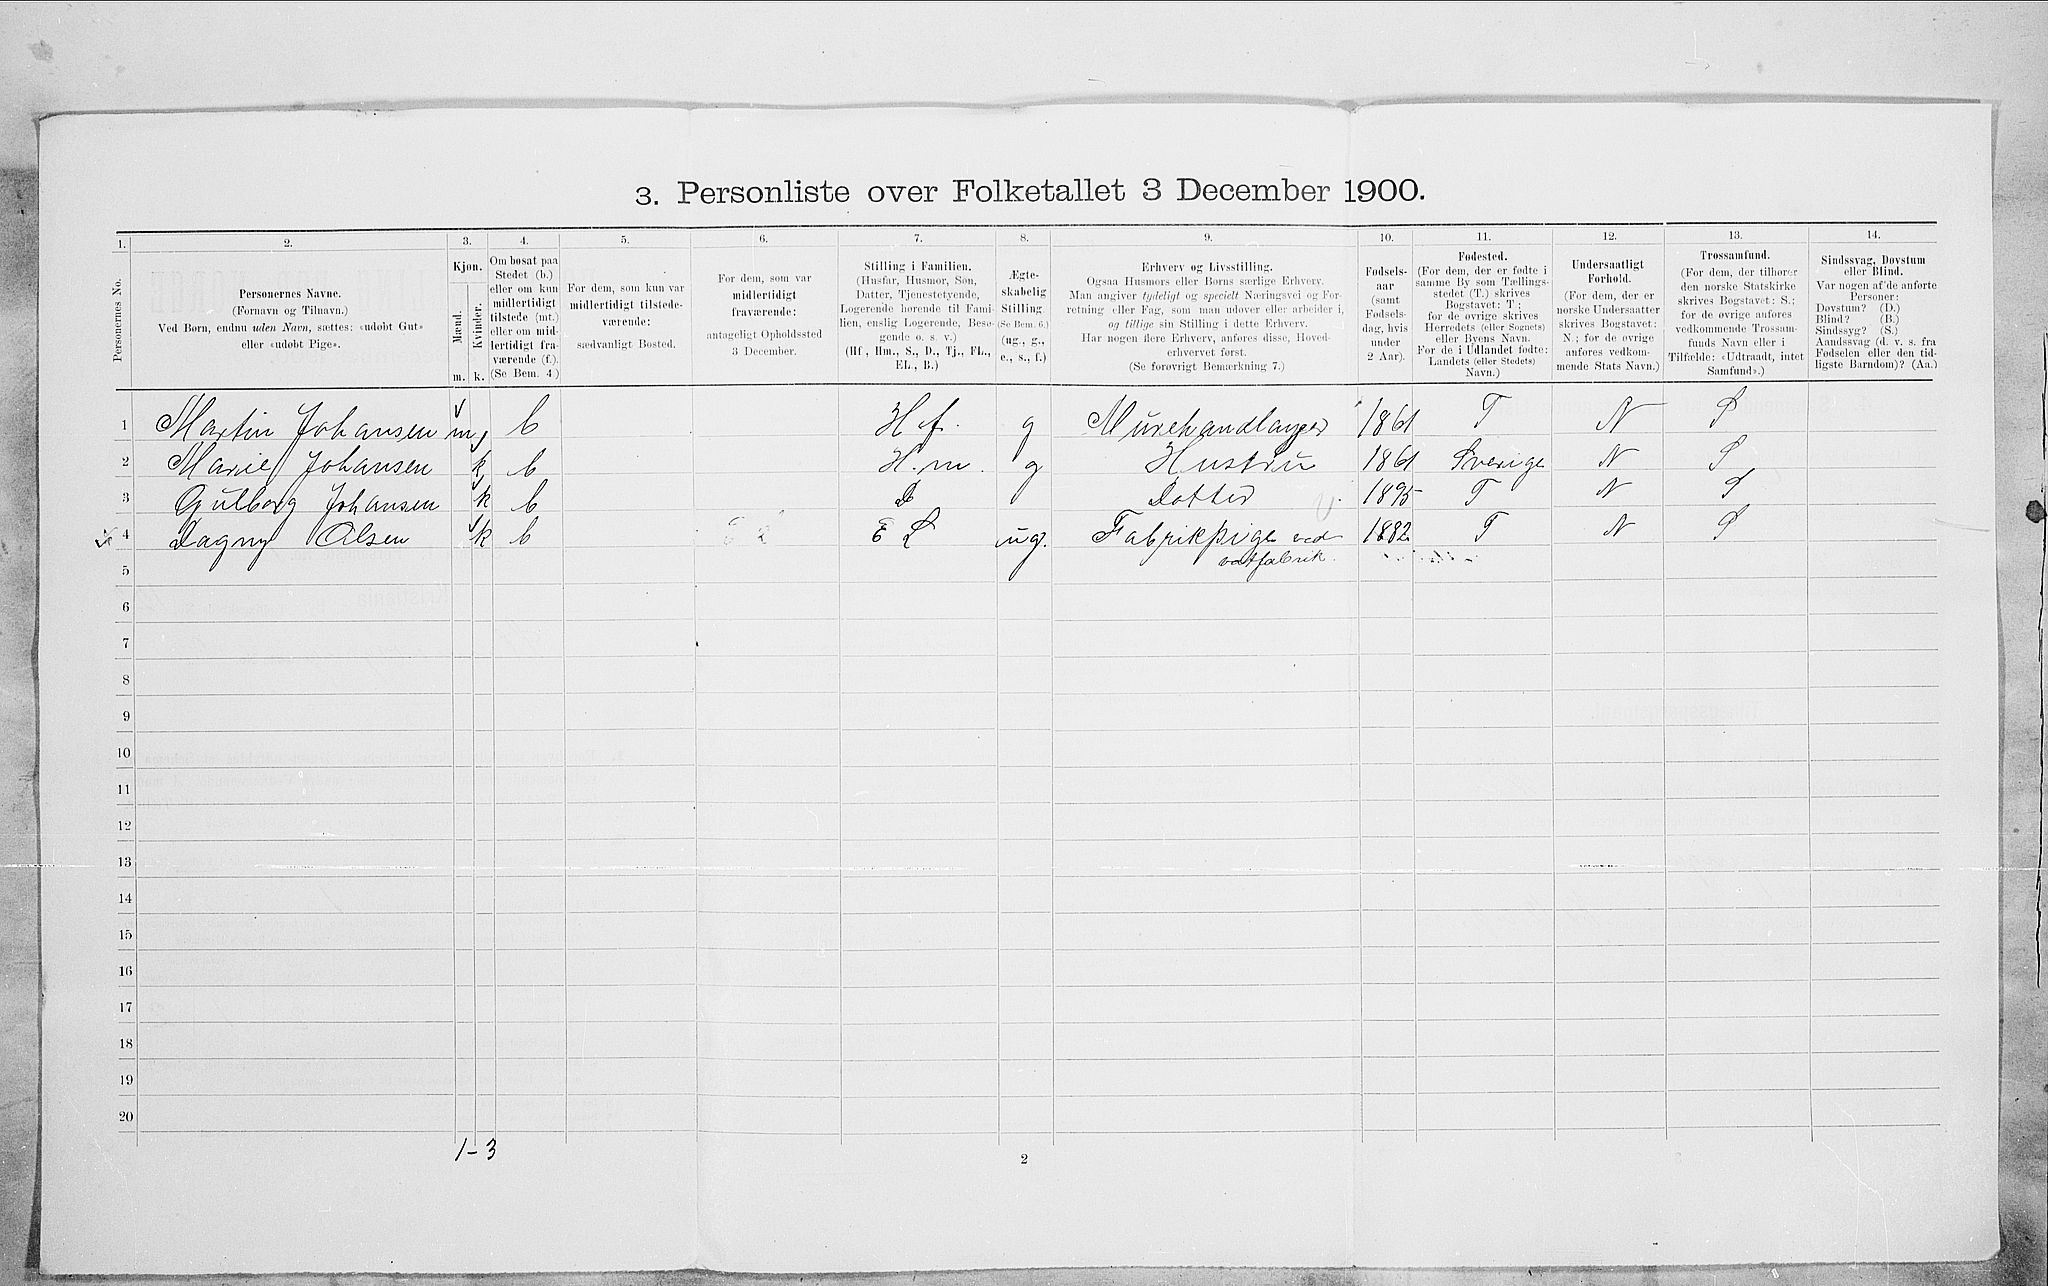 3. Personliste over Folketallet 3 December 1900.
1. 2. 3. 4. 5. 6. 7. 8. 9. 10. 11. 12. 13. 14.
Personernes No.
Personernes Navne.
(Fornavn og Tilnavn.)
Ved Børn, endnu uden Navn, sættes: «udøbt Gut»
eller «udøbt Pige».
Kjøn.
Mænd.
Kvinder.
m. k.
Om bosat paa
Stedet (b.)
eller om kun
midlertidigt
tilstede (mt.)
eller om mid-
lertidigt fra-
værende (f.).
(Se Bem. 4)
For dem, som kun var
midlertidigt tilstede-
værende:
sædvanligt Bosted.
For dem, som var
midlertidigt
fraværende:
antageligt Opholdssted
3 December.
Stilling i Familien.
(Husfar, Husmor, Søn,
Datter, Tjenestetyende,
Logerende hørende til Fami-
lien, enslig Logerende, Besø-
gende o. s. v.)
(Hf., Hm., S., D., Tj., FL.,
EL., B.)
Ægte-
skabelig
Stilling.
(Se Bem. 6.)
(ug., g.,
e., s., f.)
Erhverv og Livsstilling.
Ogsaa Husmors eller Børns særlige Erhverv.
Man angiver tydeligt og specielt Næringsvei og For-
retning eller Fag, som man udøver eller arbeider i,
og tillige sin Stilling i dette Erhverv.
Har nogen flere Erhverv, anføres disse, Hoved-
erhvervet først.
(Se forøvrigt Bemærkning 7.)
Fødsels-
aar
(samt
Fødsels-
dag, hvis
under
2 Aar).
Fødested.
(For dem, der er fødte i
samme By som Tællings-
stedet (T.) skrives
Bogstavet: T;
for de øvrige skrives
Herredets (eller Sognets)
eller Byens Navn.
For de i Udlandet fødte:
Landets (eller Stedets)
Navn.)
Undersaatligt
Forhold.
(For dem, der er
norske Undersaatter
skrives Bogstavet:
N.; for de øvrige
anføres vedkom-
mende Stats Navn.)
Trossamfund.
(For dem, der tilhører
den norske Statskirke
skrives Bogstavet: S.;
for de øvrige anføres
vedkommende Trossam-
funds Navn eller i
Tilfælde: «Udtraadt, intet
Samfund».)
Sindssvag, Døvstum
eller Blind.
Var nogen af de anførte
Personer:
Døvstum? (D.)
Blind? (B.)
Sindssyg? (S.)
Aandssvag (d. v. s. fra
Fødselen eller den tid-
ligste Barndom)? (Aa.)
1 Martin Johansen m b Hf. g Murehandlanger 1861 T N S
2 Marie Johansen k b H.m. g Hustru 1861 Sverige N S
3 Gulborg Johansen k b D Datter 1895 T N S
4 Dagny Olsen k b E L ug. Fabrikpige ved 1882 T N S
vatfabrik.
5
6
7
8
9
10
11
12
13
14
15
16
17
18
19
20
1-3
2